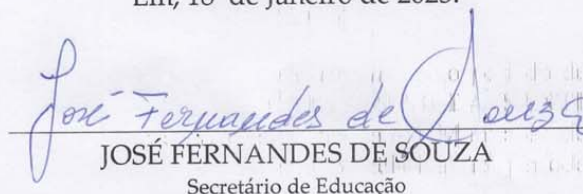 Em, 16 de janeiro de 2023.
José Fernandes de Souza
JOSÉ FERNANDES DE SOUZA
Secretário de Educação